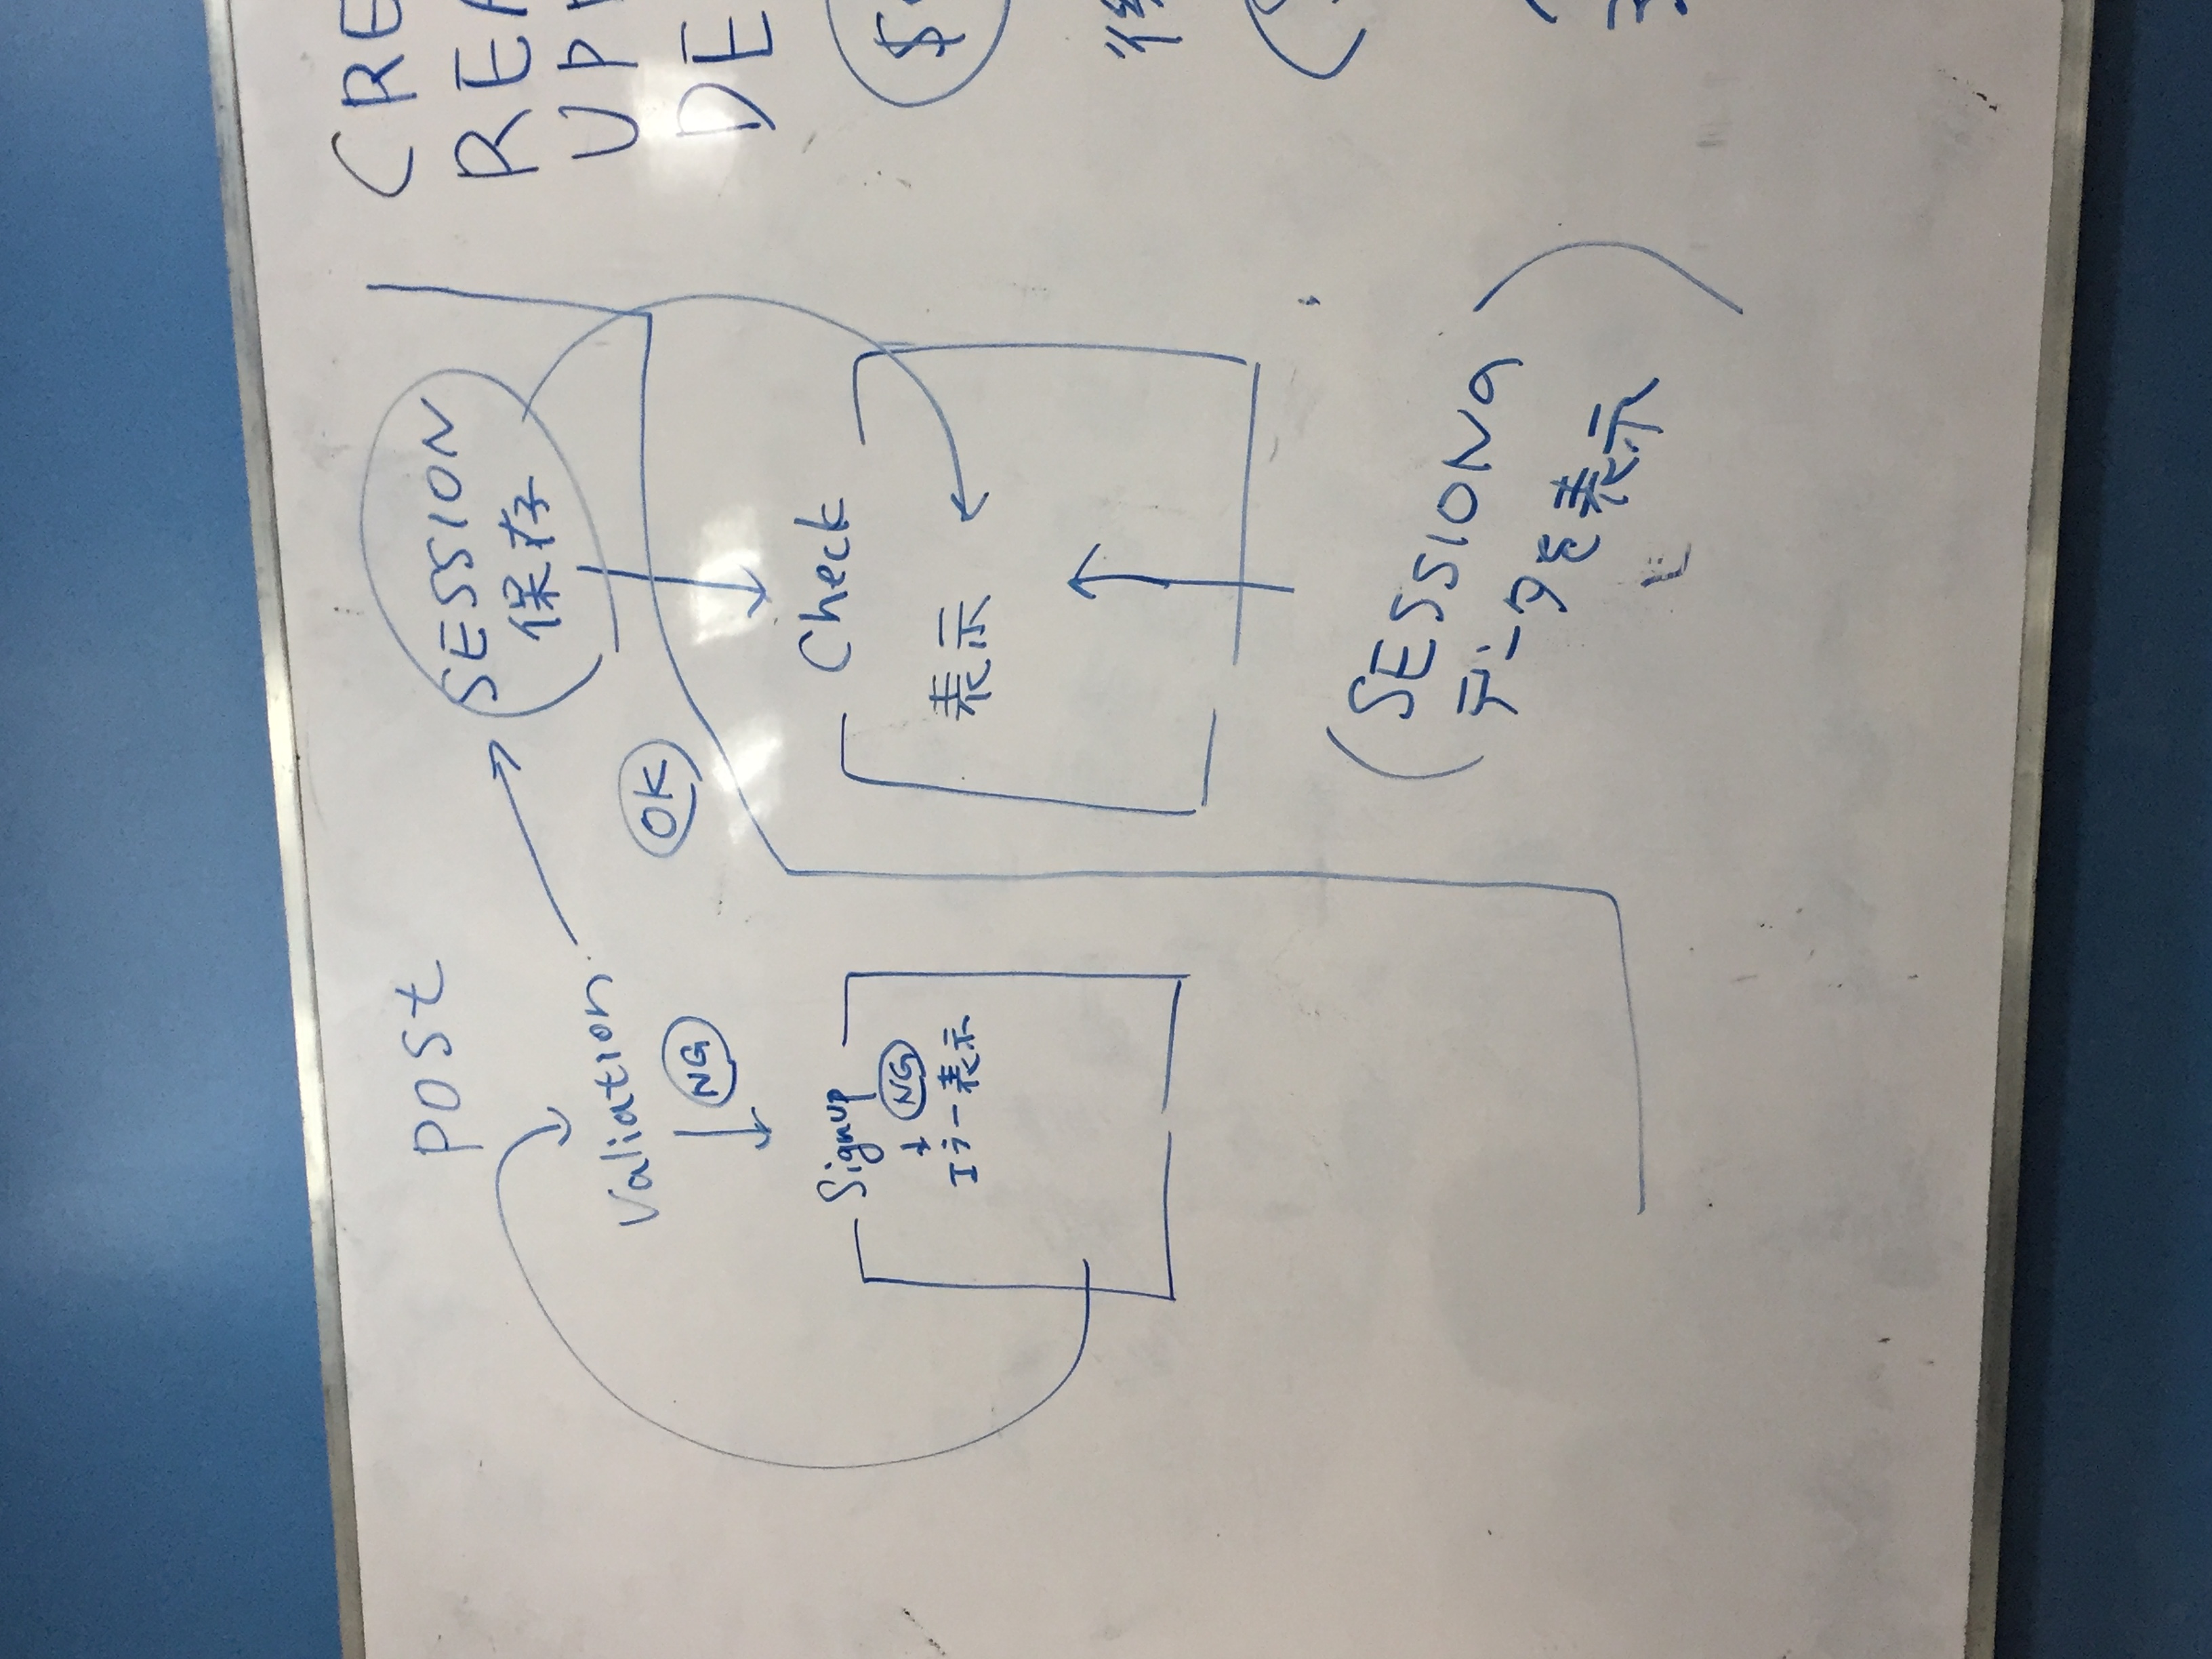 POSt
Valiation
NG
Signup
NG
エラー表示
SESSION
保存
OK
Check
表示
(SESSIONの
データを表示)
CRE
REA
UP
DE
$
後